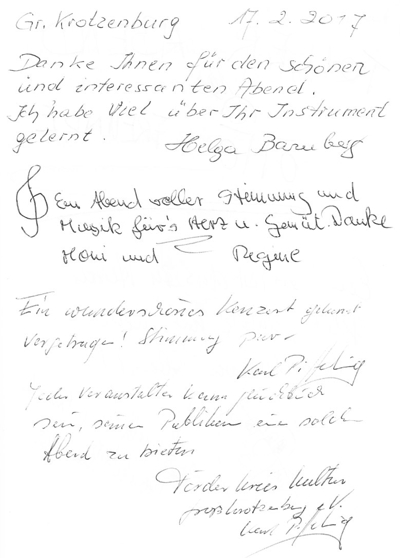 Gr. Krotzenburg 17.2.2017
Danke Ihnen für den schönen
und interessanten Abend.
Ich habe Viel über Ihr Instrument
gelernt.
Helga
Ein Abend voller Stimmung und
Musik für's Herz u. Gemüt. Danke
Moni und Regine
Ein wunderschönes Konzert gekonnt
vorgetragen! Stimmung pur
Karl
Jeder Veranstalter kann glücklich
sein, seinem Publikum ein solch
Abend zu bieten
Förderkreis Kultur
Grosskrotzenburg e.V.
Karl